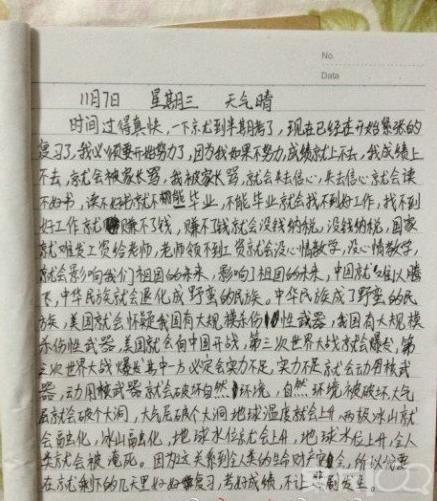 No.
Data
11月7日 星期三 天气晴
时间过得真快,一下就到半期考了,现在已经在开始紧张的
复习了,我必须要开始努力了,因为我如果不努力,成绩就上不去,我成绩上
不去,就会被家长骂,我被家长骂,就会失去信心,失去信心就会读
不好书,读不好书就不能毕业,不能毕业就会找不到好工作,我找不到
好工作就赚不了钱,赚不了钱就会没钱纳税,没钱纳税,国家
就难发工资给老师,老师领不到工资就会没心情教学,没心情教学,
就会影响我们祖国的未来,影响了祖国的未来,中国就难以腾
飞,中华民族就会退化成野蛮的民族。中华民族成了野蛮的民
族,美国就会怀疑我国有大规模杀伤性武器,我国有大规模
杀伤性武器,美国就会向中国开战,第三次世界大战就会爆发,第
三次世界大战爆发其中一方必定会实力不足,实力不足就会动用核武
器,动用核武器就会破坏自然环境,自然环境被破坏,大气
层就会破个大洞,大气层破个大洞地球温度就会上升,两极冰山就
会融化,冰山融化,地球水位就会上升,地球水位上升,全人
类就会被淹死。因为这关系到全人类的生命财产安全,所以我要
在这剩下的几天里好好复习,考好成绩,不让悲剧发生。